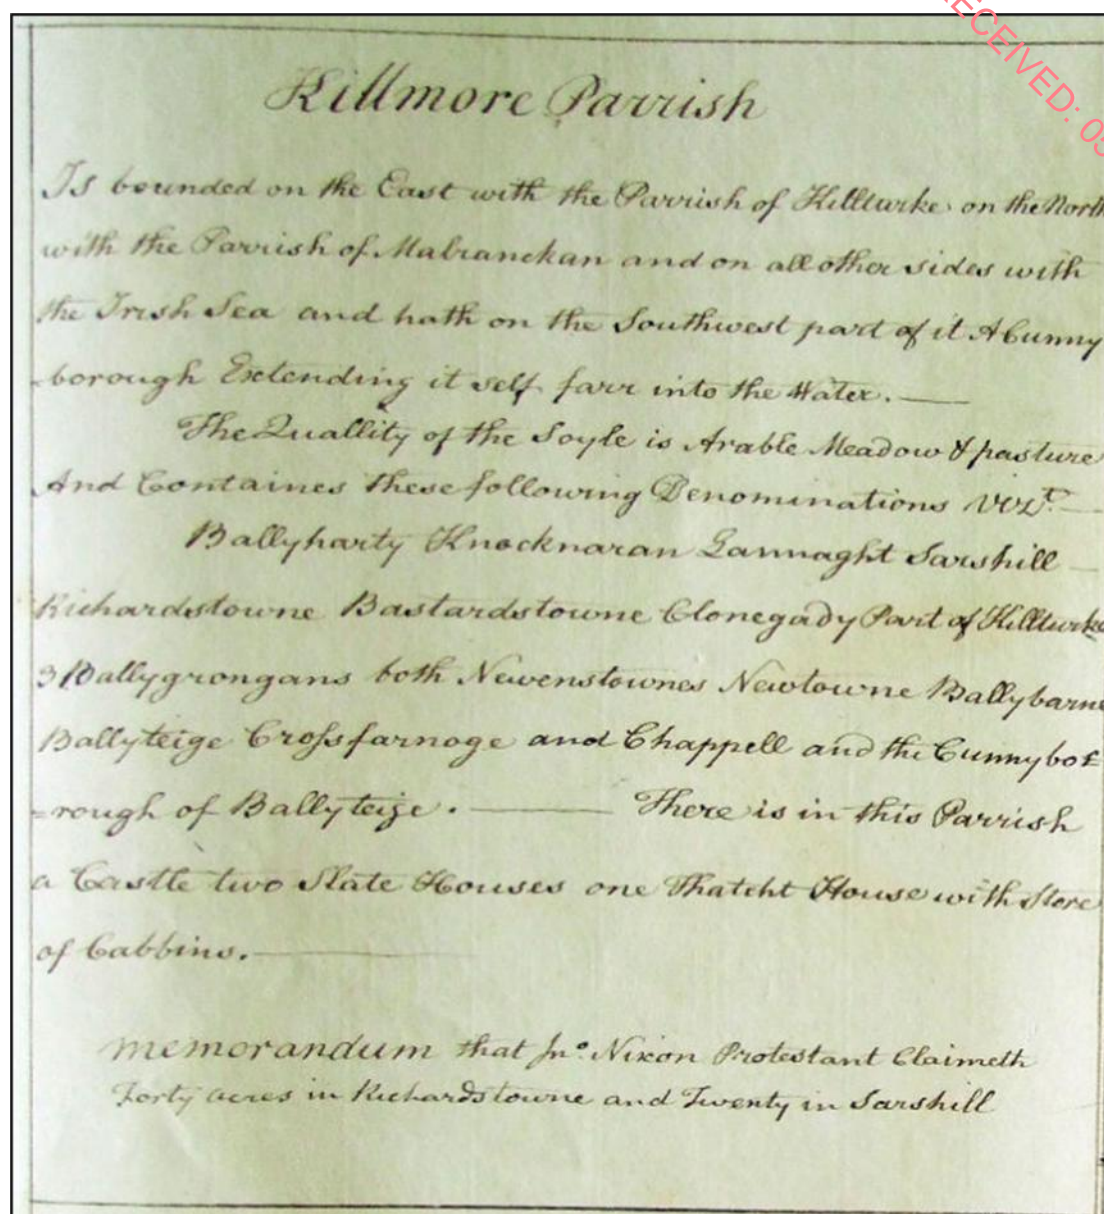 RECEIVED: 05
Killmore Parrish
Is bounded on the East with the Parrish of Killturke on the North
with the Parrish of Mabranckan and on all other sides with
the Irish Sea and hath on the Southwest part of it A Cunny
-borough Extending it self farr into the Water. —
The Quallity of the Soyle is Arable Meadow & pasture
And Containes these following Denominations Vizt. —
Ballyharty Knocknaran Lannaght Sarshill —
Richardstowne Bastardstowne Clonegady Part of Killturke
3 Ballygrongans both Newenstownes Newtowne Ballybarne
Ballyteige Crossfarnoge and Chappell and the Cunnybo
=rough of Ballyteige. — There is in this Parrish
a Castle two Slate Houses one Thatcht House with Store
of Cabbins. —
Memorandum that Jno. Nixon Protestant Claimeth
Forty acres in Richardstowne and Twenty in Sarshill